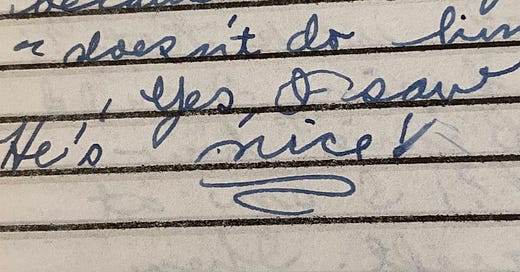 ~ doesn't do him
, Yes, I saw
He's nice!